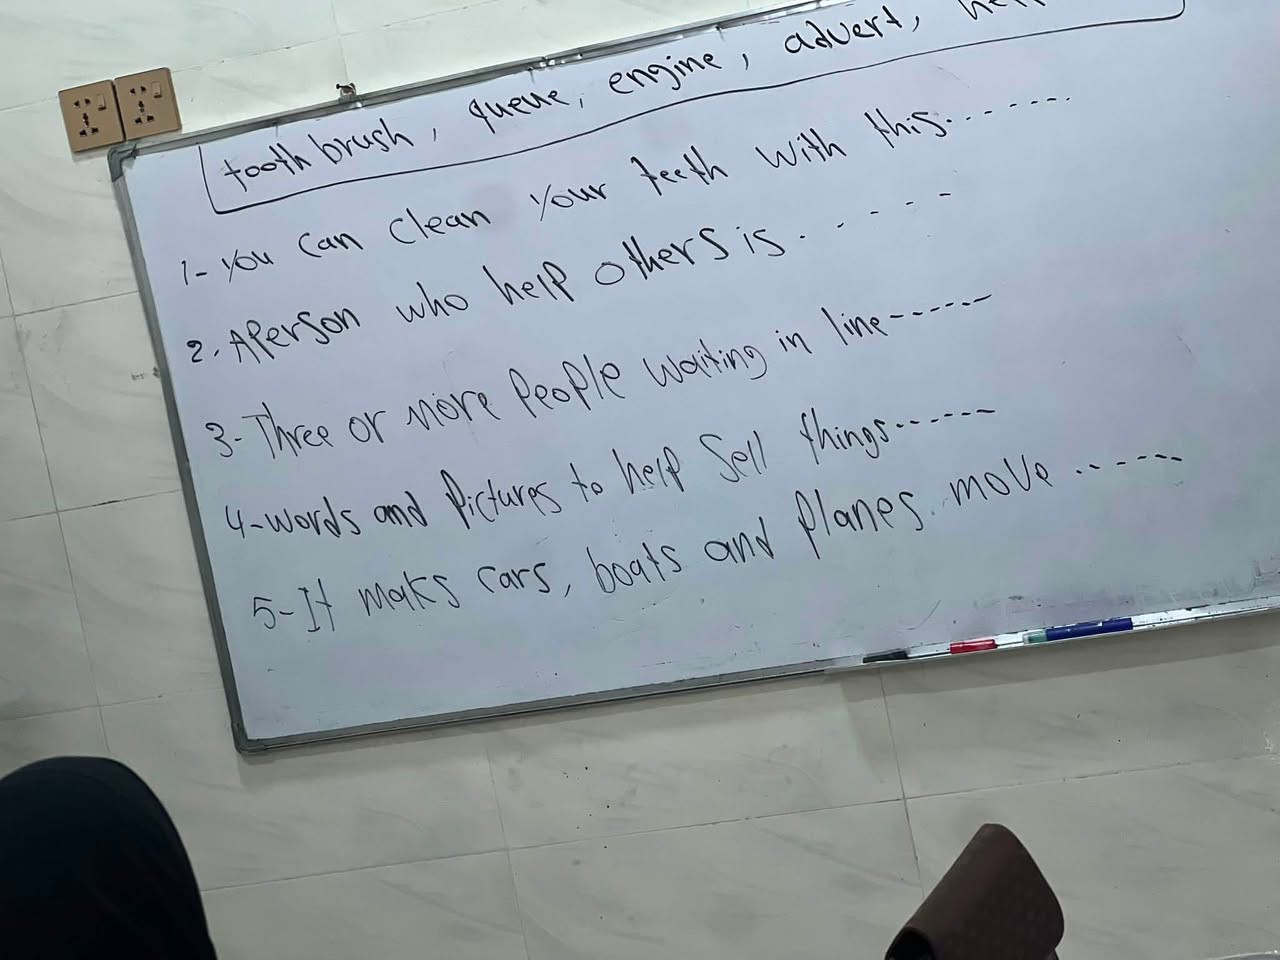 toothbrush, queue, engine, advert,
1- You can clean your teeth with this..........
2. A Person who help others is......
3- Three or more People waiting in line------
4- words and Pictures to help Sell things------
5- It maks cars, boats and Planes move ......